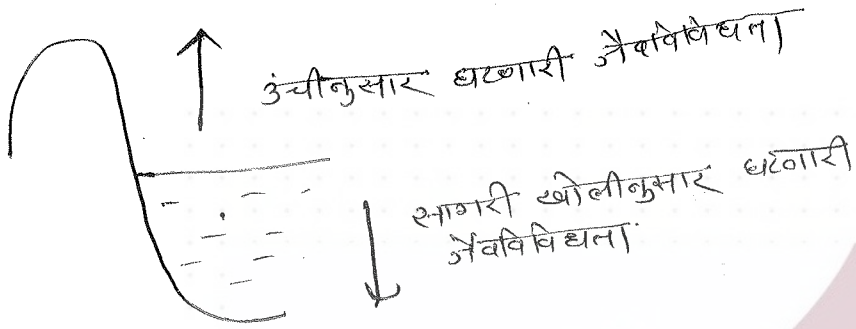 उंचीनुसार घटणारी जैवविविधता
सागरी खोलीनुसार घटणारी
जैवविविधता